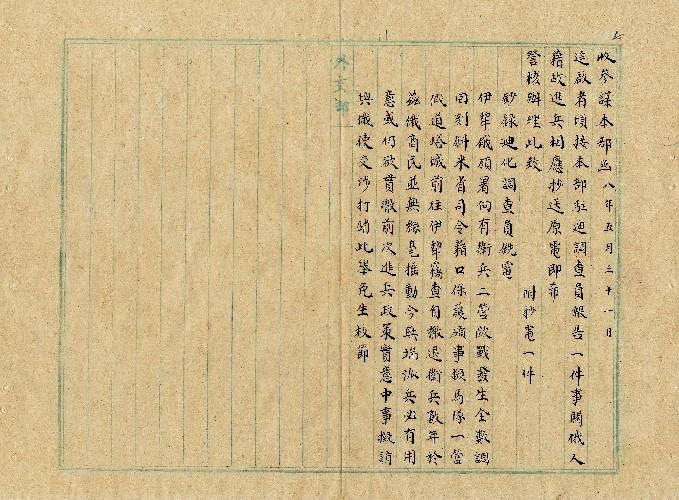 收參謀本部函 八年五月三十一日
逕啟者頃接本部駐迪調查員報告一件事關俄人
藉政進兵相應抄送原電即希
詧核辦理此致
附抄電一件
抄錄迪化調查員姚電
伊犂俄領署向有衛兵二營歐戰發生全數調
回刻斜米省司令藉口保護領事擬馬隊一營
假道塔城前往伊犂竊查自撤退衛兵數年於
茲俄商民並無絲毫搖動今無端派兵必有用
意或仍欲貫徹前次進兵政策實意中事擬請
與俄使交涉打消此舉免生枝節
外交部